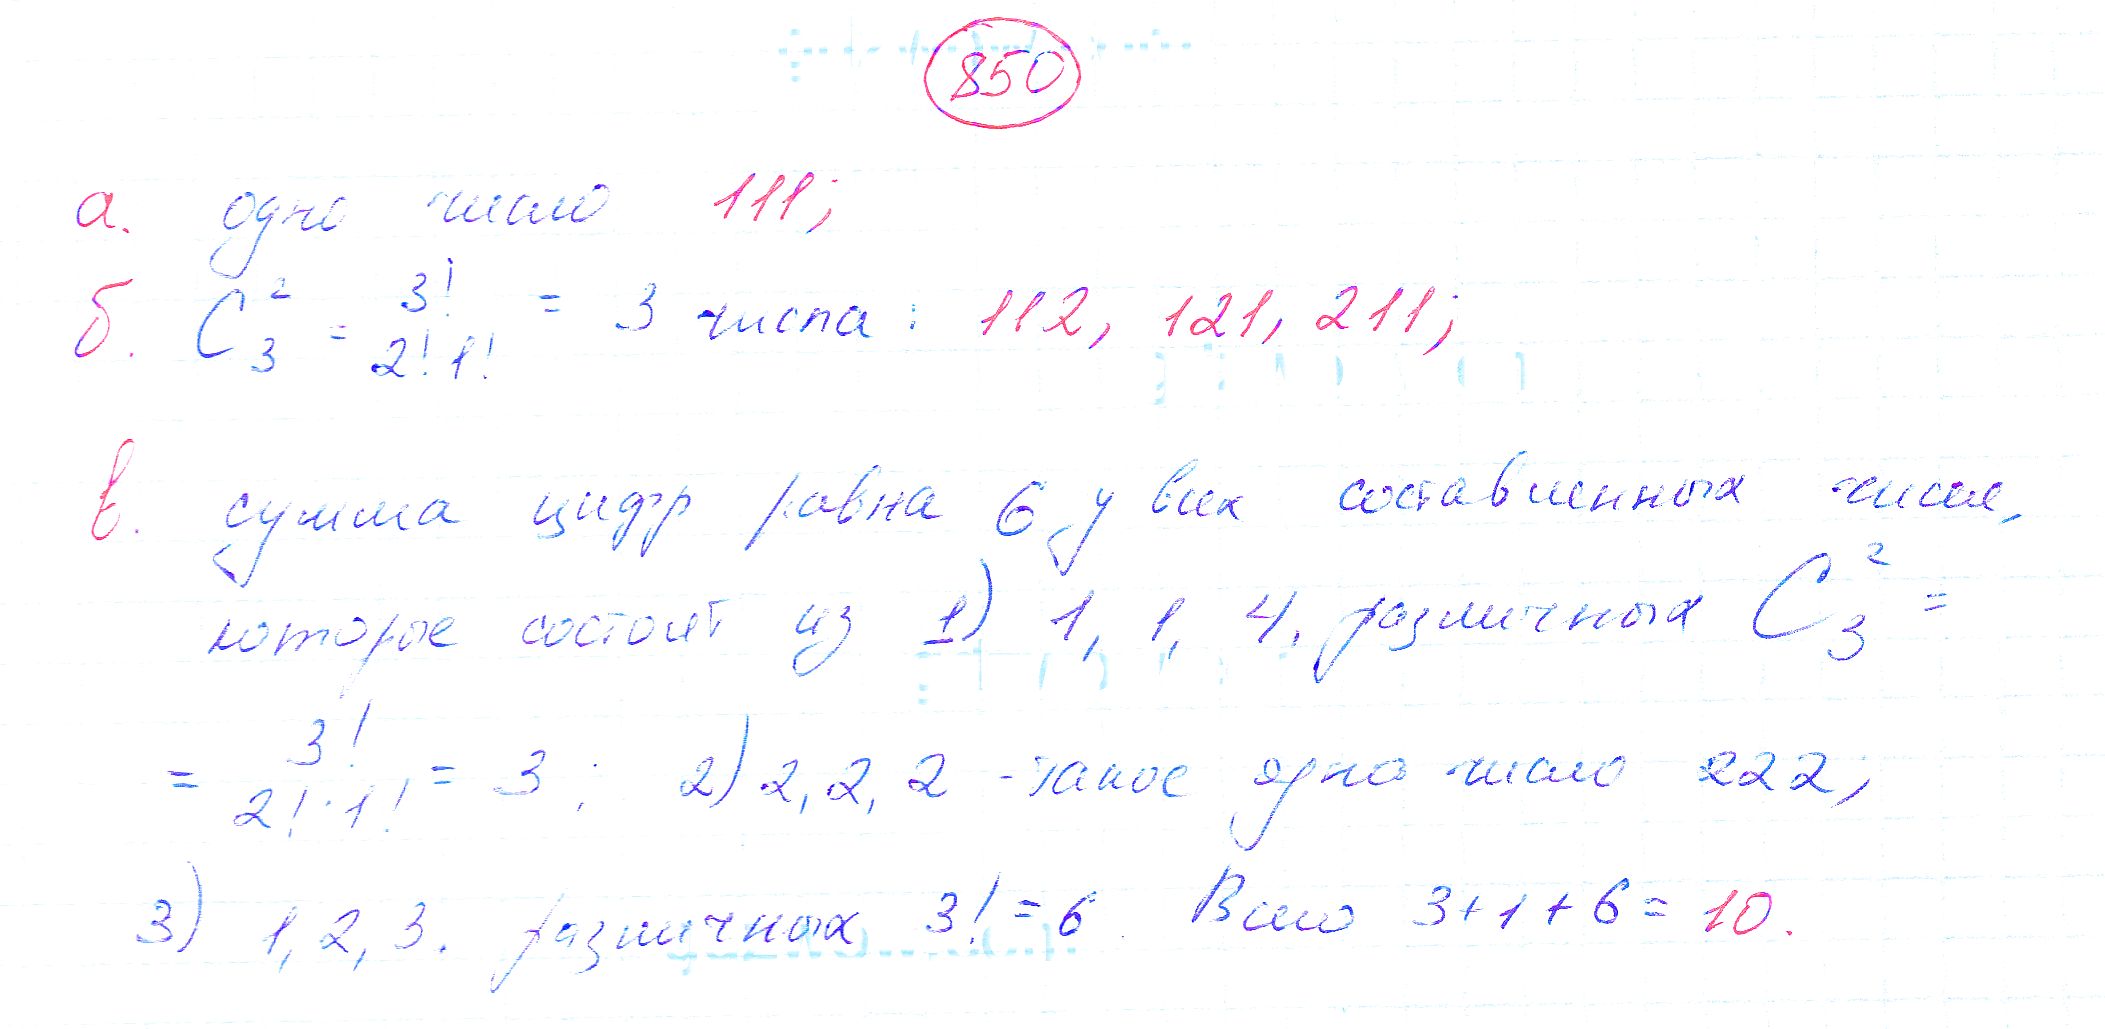 850
а. одно число 111;
б. C₃² = 3!/(2! 1!) = 3 числа: 112, 121, 211;
в. сумма цифр равна 6 у всех составленных чисел,
которые состоят из 1) 1, 1, 4. различных C₃² =
= 3!/(2!·1!) = 3; 2) 2, 2, 2 - такое одно число 222;
3) 1, 2, 3. различных 3! = 6. Всего 3+1+6=10.